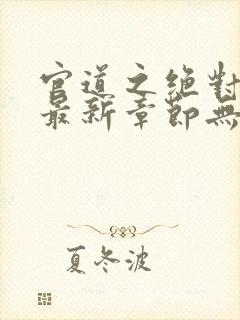 官道之绝對
最新章節無
夏冬波